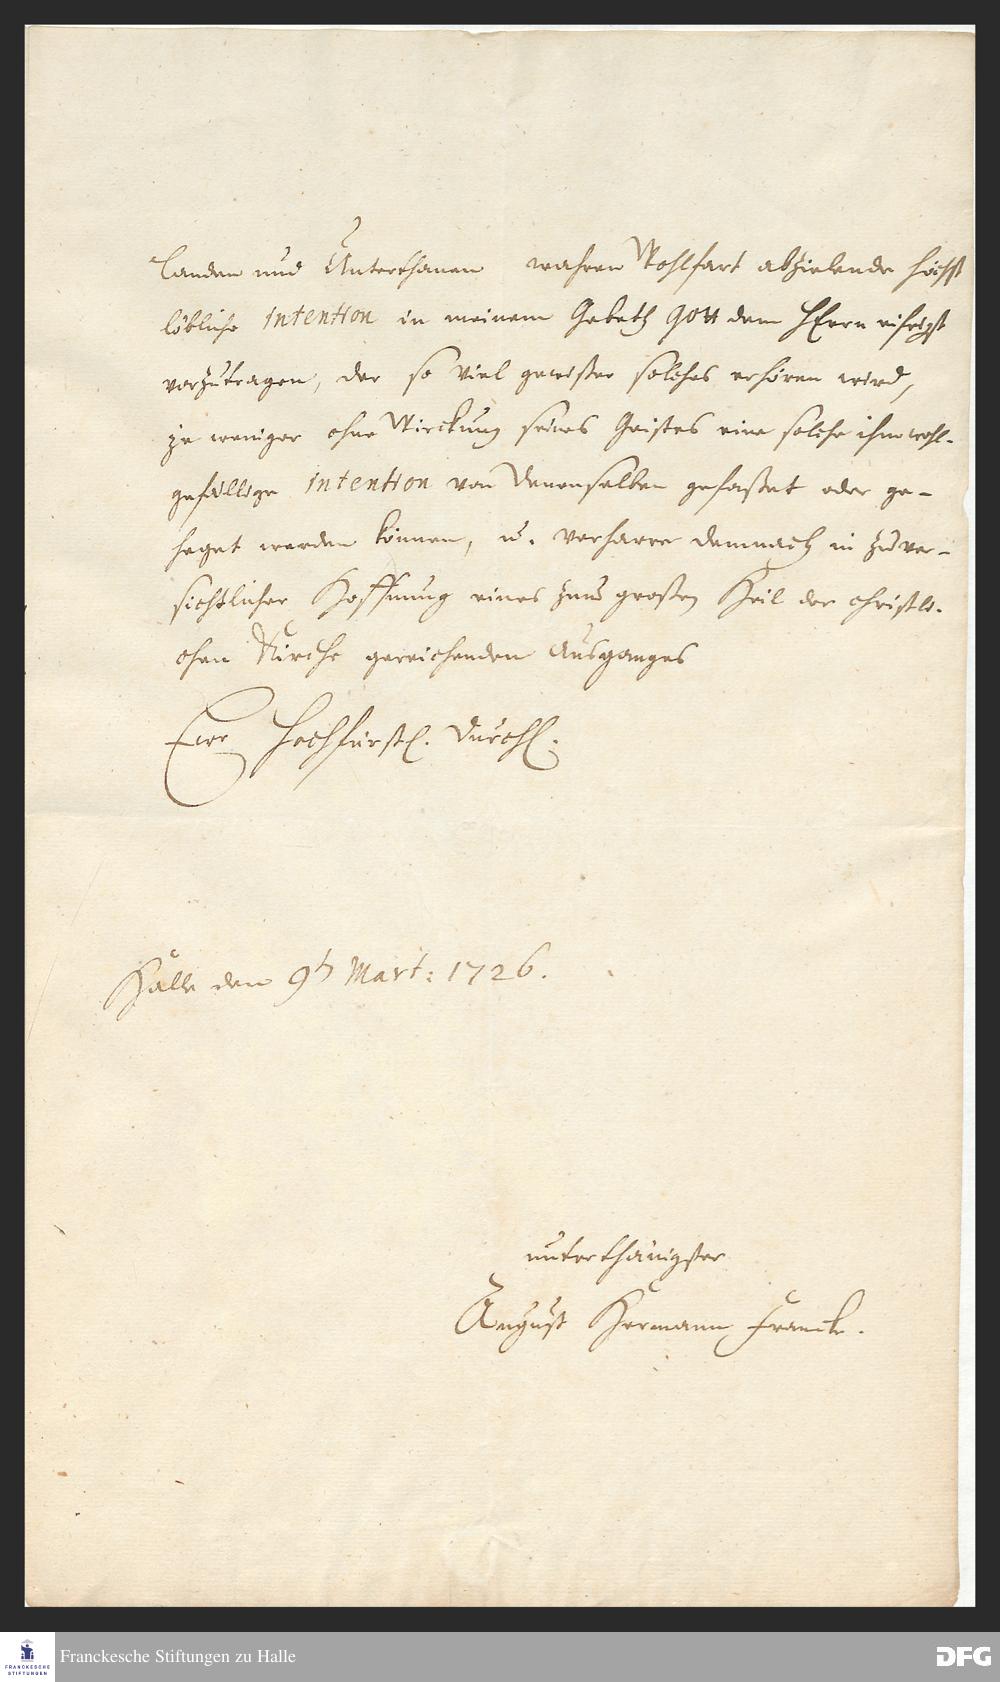 Landen und Unterthanen wahren Wohlfart abzielende höchst
löbliche intention in meinem Gebeth Gott dem HErrn eifrigst
vorzutragen, der so viel gewißer solches erhören wird,
je weniger ohne Wirckung seines Geistes eine solche ihm wohl-
gefällige intention von Denenselben gefaßet oder ge-
heget werden können, u. verharre demnach in zuver-
sichtlicher Hoffnung eines zum großen Heil der christli-
chen Kirche gereichenden Ausganges
Ewr Hochfürstl. Durchl.
Halle den 9th Mart: 1726.
unterthänigster
August Hermann Francke.
FRANCKESCHE
STIFTUNGEN
Franckesche Stiftungen zu Halle
DFG